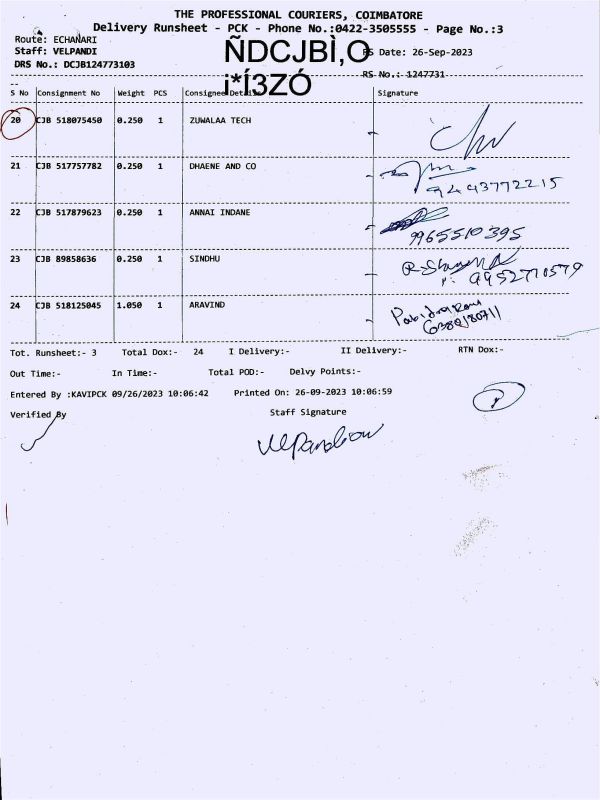 THE PROFESSIONAL COURIERS, COIMBATORE
Delivery Runsheet - PCK - Phone No.:0422-3505555 - Page No.:3
Route: ECHANARI
Staff: VELPANDI
DRS No.: DCJB124773103
ÑDCJBÌ,O
i*Í3ZÓ
RS Date: 26-Sep-2023
RS No.: 1247731
S No Consignment No Weight PCS Consignee Details Signature
20 CJB 518075450 0.250 1 ZUWALAA TECH
21 CJB 517757782 0.250 1 DHAENE AND CO 9443772215
22 CJB 517879623 0.250 1 ANNAI INDANE 9965510395
23 CJB 89858636 0.250 1 SINDHU 9952710579
24 CJB 518125045 1.050 1 ARAVIND
Tot. Runsheet:- 3 Total Dox:- 24 I Delivery:- II Delivery:- RTN Dox:-
Out Time:- In Time:- Total POD:- Delvy Points:-
Entered By :KAVIPCK 09/26/2023 10:06:42 Printed On: 26-09-2023 10:06:59
Verified By Staff Signature